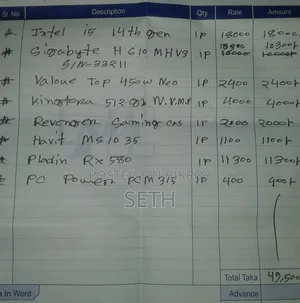 Sl No Description Qty. Rate Amount
# Intel i5 14th gen 1P 18000 18000/-
# Gigabyte H 610 MHV3 1P 10300 10300/-
S/N-33211
# Value Top 450w Neo 1P 2400 2400/-
# 512 GB N.V.M.e 1P 4000 4000/-
# Revenger Gaming Cas 1P 2000 2000/-
# Havit MS 1035 1P 1100 1100/-
# Pladin RX 580 1P 11300 11300/-
# PC Power PCM 315 1P 400 400/-
SETH
Total Taka 49,500
In Word
Advance